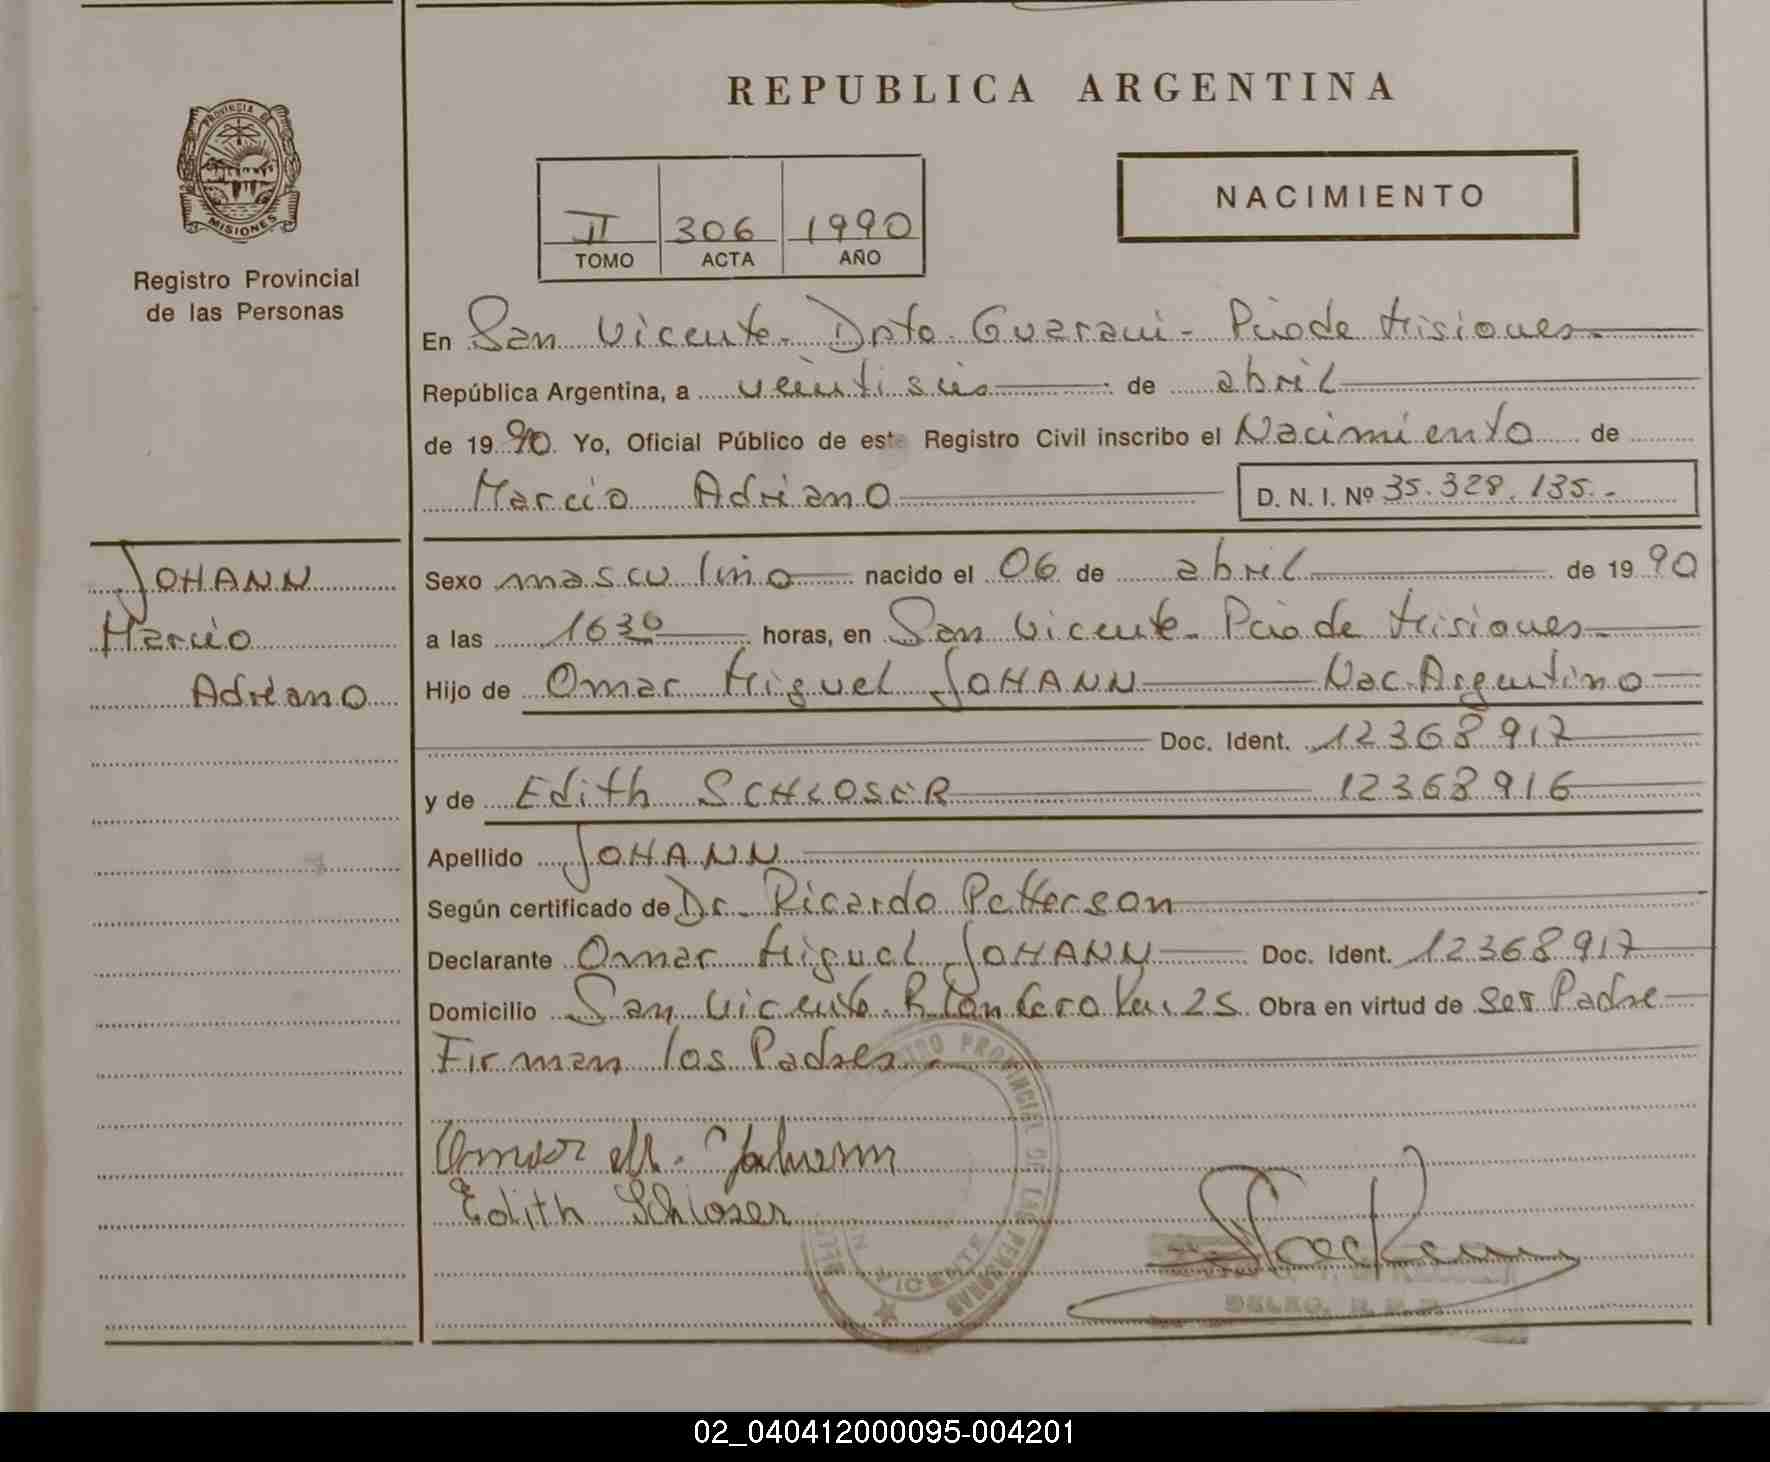 REPUBLICA ARGENTINA
PROVINCIA DE
MISIONES
Registro Provincial
de las Personas
II 306 1990
TOMO ACTA AÑO
NACIMIENTO
En San Vicente - Dpto. Guarani - Pcia de Misiones
República Argentina, a veintiseis de abril
de 1990. Yo, Oficial Público de este Registro Civil inscribo el Nacimiento de
Marcio Adriano D. N. I. Nº 35.328.135.-
JOHANN
Marcio
Adriano
Sexo masculino nacido el 06 de abril de 1990
a las 16 30 horas, en San Vicente - Pcia de Misiones
Hijo de Omar Miguel JOHANN Nac. Argentino
Doc. Ident. 12368917
y de Edith SCHLOSER 12368916
Apellido JOHANN
Según certificado de Dr. Ricardo Petterson
Declarante Omar Miguel JOHANN Doc. Ident. 12368917
Domicilio San Vicente 25 Obra en virtud de Ser Padre
Firman los Padres.
Omar M. Johann
Edith Schloser
PROVINCIAL DE LAS PERSONAS
VICENTE
02_040412000095-004201